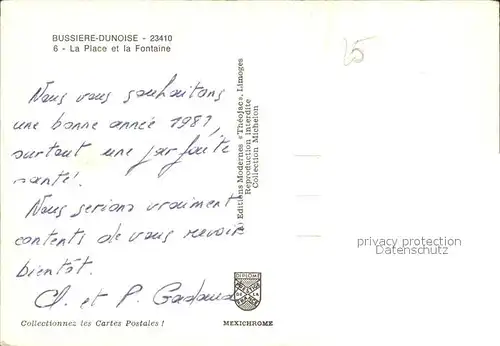 BUSSIERE-DUNOISE - 23410
6 - La Place et la Fontaine
Nous vous souhaitons
une bonne année 1981,
surtout une parfaite
santé.
Nous serions vraiment
contents de vous revoir
bientôt.
Cl. et P.
Editions Modernes «Théojac», Limoges
Reproduction interdite
Collection Michelon
25
privacy protection
Datenschutz
DIPLOME
DE LA
Collectionnez les Cartes Postales !
MEXICHROME